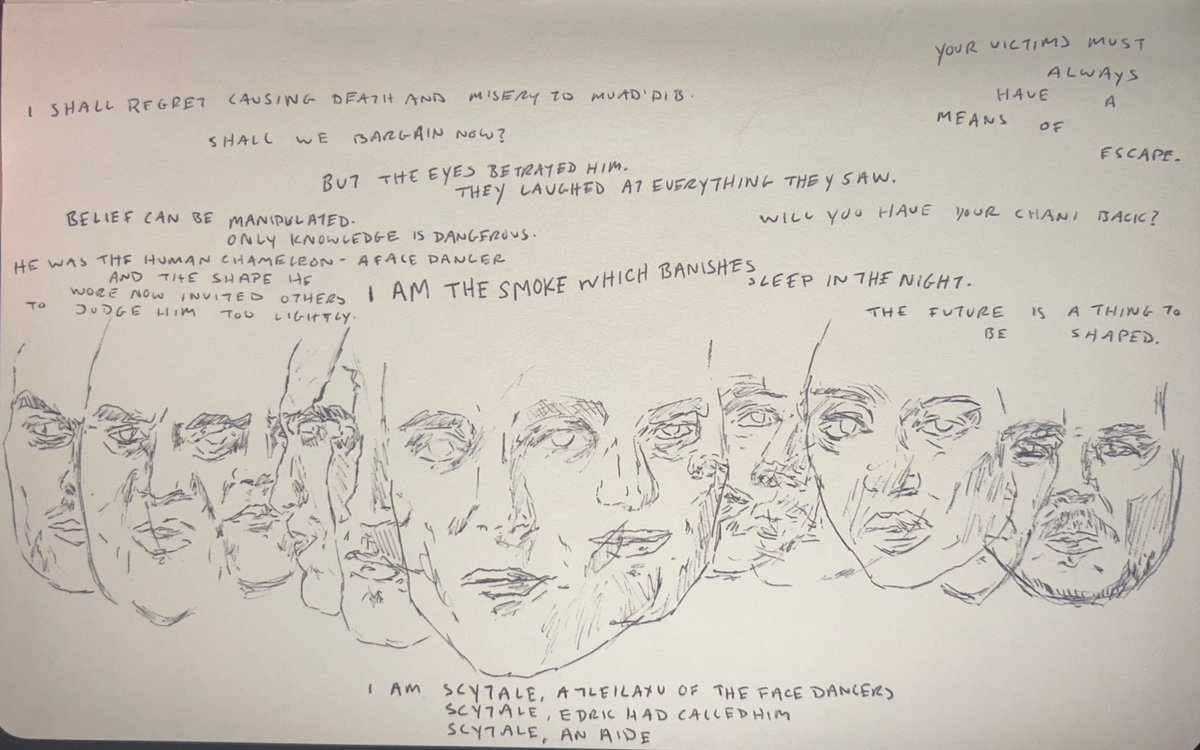 YOUR VICTIMS MUST
ALWAYS
HAVE A
MEANS OF
ESCAPE.
I SHALL REGRET CAUSING DEATH AND MISERY TO MUAD'DIB.
SHALL WE BARGAIN NOW?
BUT THE EYES BETRAYED HIM.
THEY LAUGHED AT EVERYTHING THEY SAW.
BELIEF CAN BE MANIPULATED.
ONLY KNOWLEDGE IS DANGEROUS.
WILL YOU HAVE YOUR CHANI BACK?
HE WAS THE HUMAN CHAMELEON - A FACE DANCER
AND THE SHAPE HE
WORE NOW INVITED OTHERS
TO JUDGE HIM TOO LIGHTLY.
I AM THE SMOKE WHICH BANISHES SLEEP IN THE NIGHT.
THE FUTURE IS A THING TO
BE SHAPED.
I AM SCYTALE, A TLEILAXU OF THE FACE DANCERS
SCYTALE, EDRIC HAD CALLED HIM
SCYTALE, AN AIDE